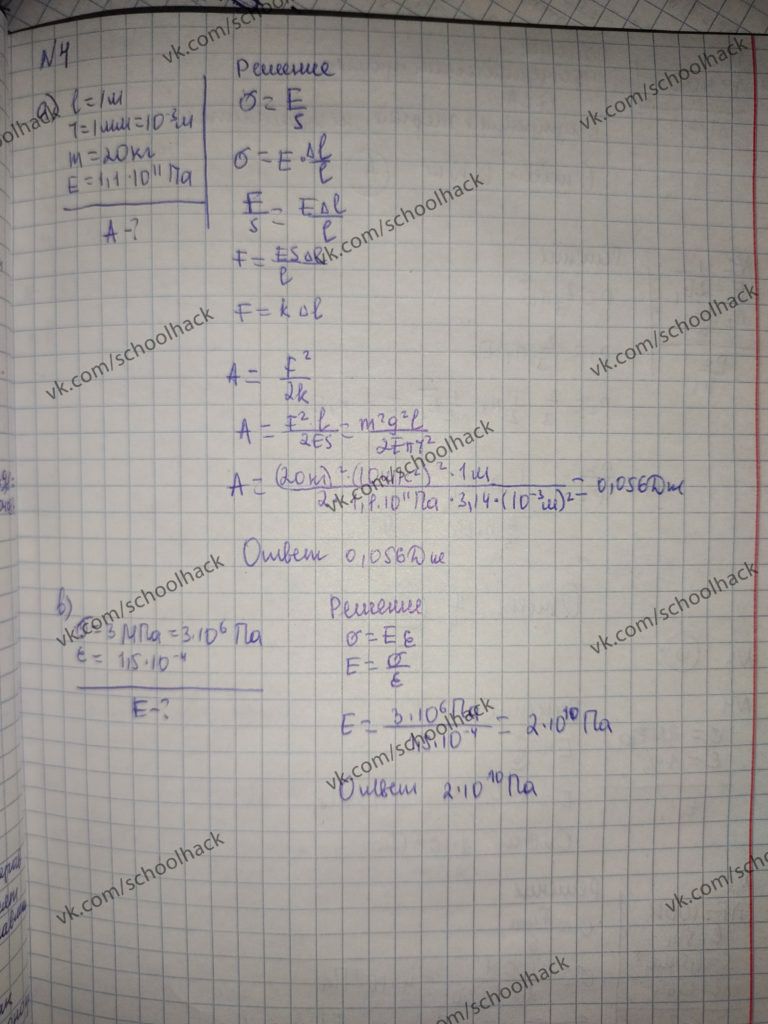 N4
а) l=1м
r=1мм=10⁻³м
m=20кг
E=1,1·10¹¹Па
A-?
Решение
σ=F/S
σ=E·Δl/l
F/S=EΔl/l
F=ESΔl/l
F=kΔl
A=F²/2k
A=F²l/2ES=m²g²l/2Eπr²
A=(20кг)²·(10м/с²)²·1м/2·1,1·10¹¹Па·3,14·(10⁻³м)²=0,056Дж
Ответ 0,056Дж
в)
σ=3МПа=3·10⁶Па
ε=1,5·10⁻⁴
E-?
Решение
σ=Eε
E=σ/ε
E=3·10⁶Па/1,5·10⁻⁴=2·10¹⁰Па
Ответ 2·10¹⁰Па
vk.com/schoolhack
vk.com/schoolhack
vk.com/schoolhack
vk.com/schoolhack
vk.com/schoolhack
vk.com/schoolhack
vk.com/schoolhack
vk.com/schoolhack
vk.com/schoolhack
vk.com/schoolhack
vk.com/schoolhack
vk.com/schoolhack
vk.com/schoolhack